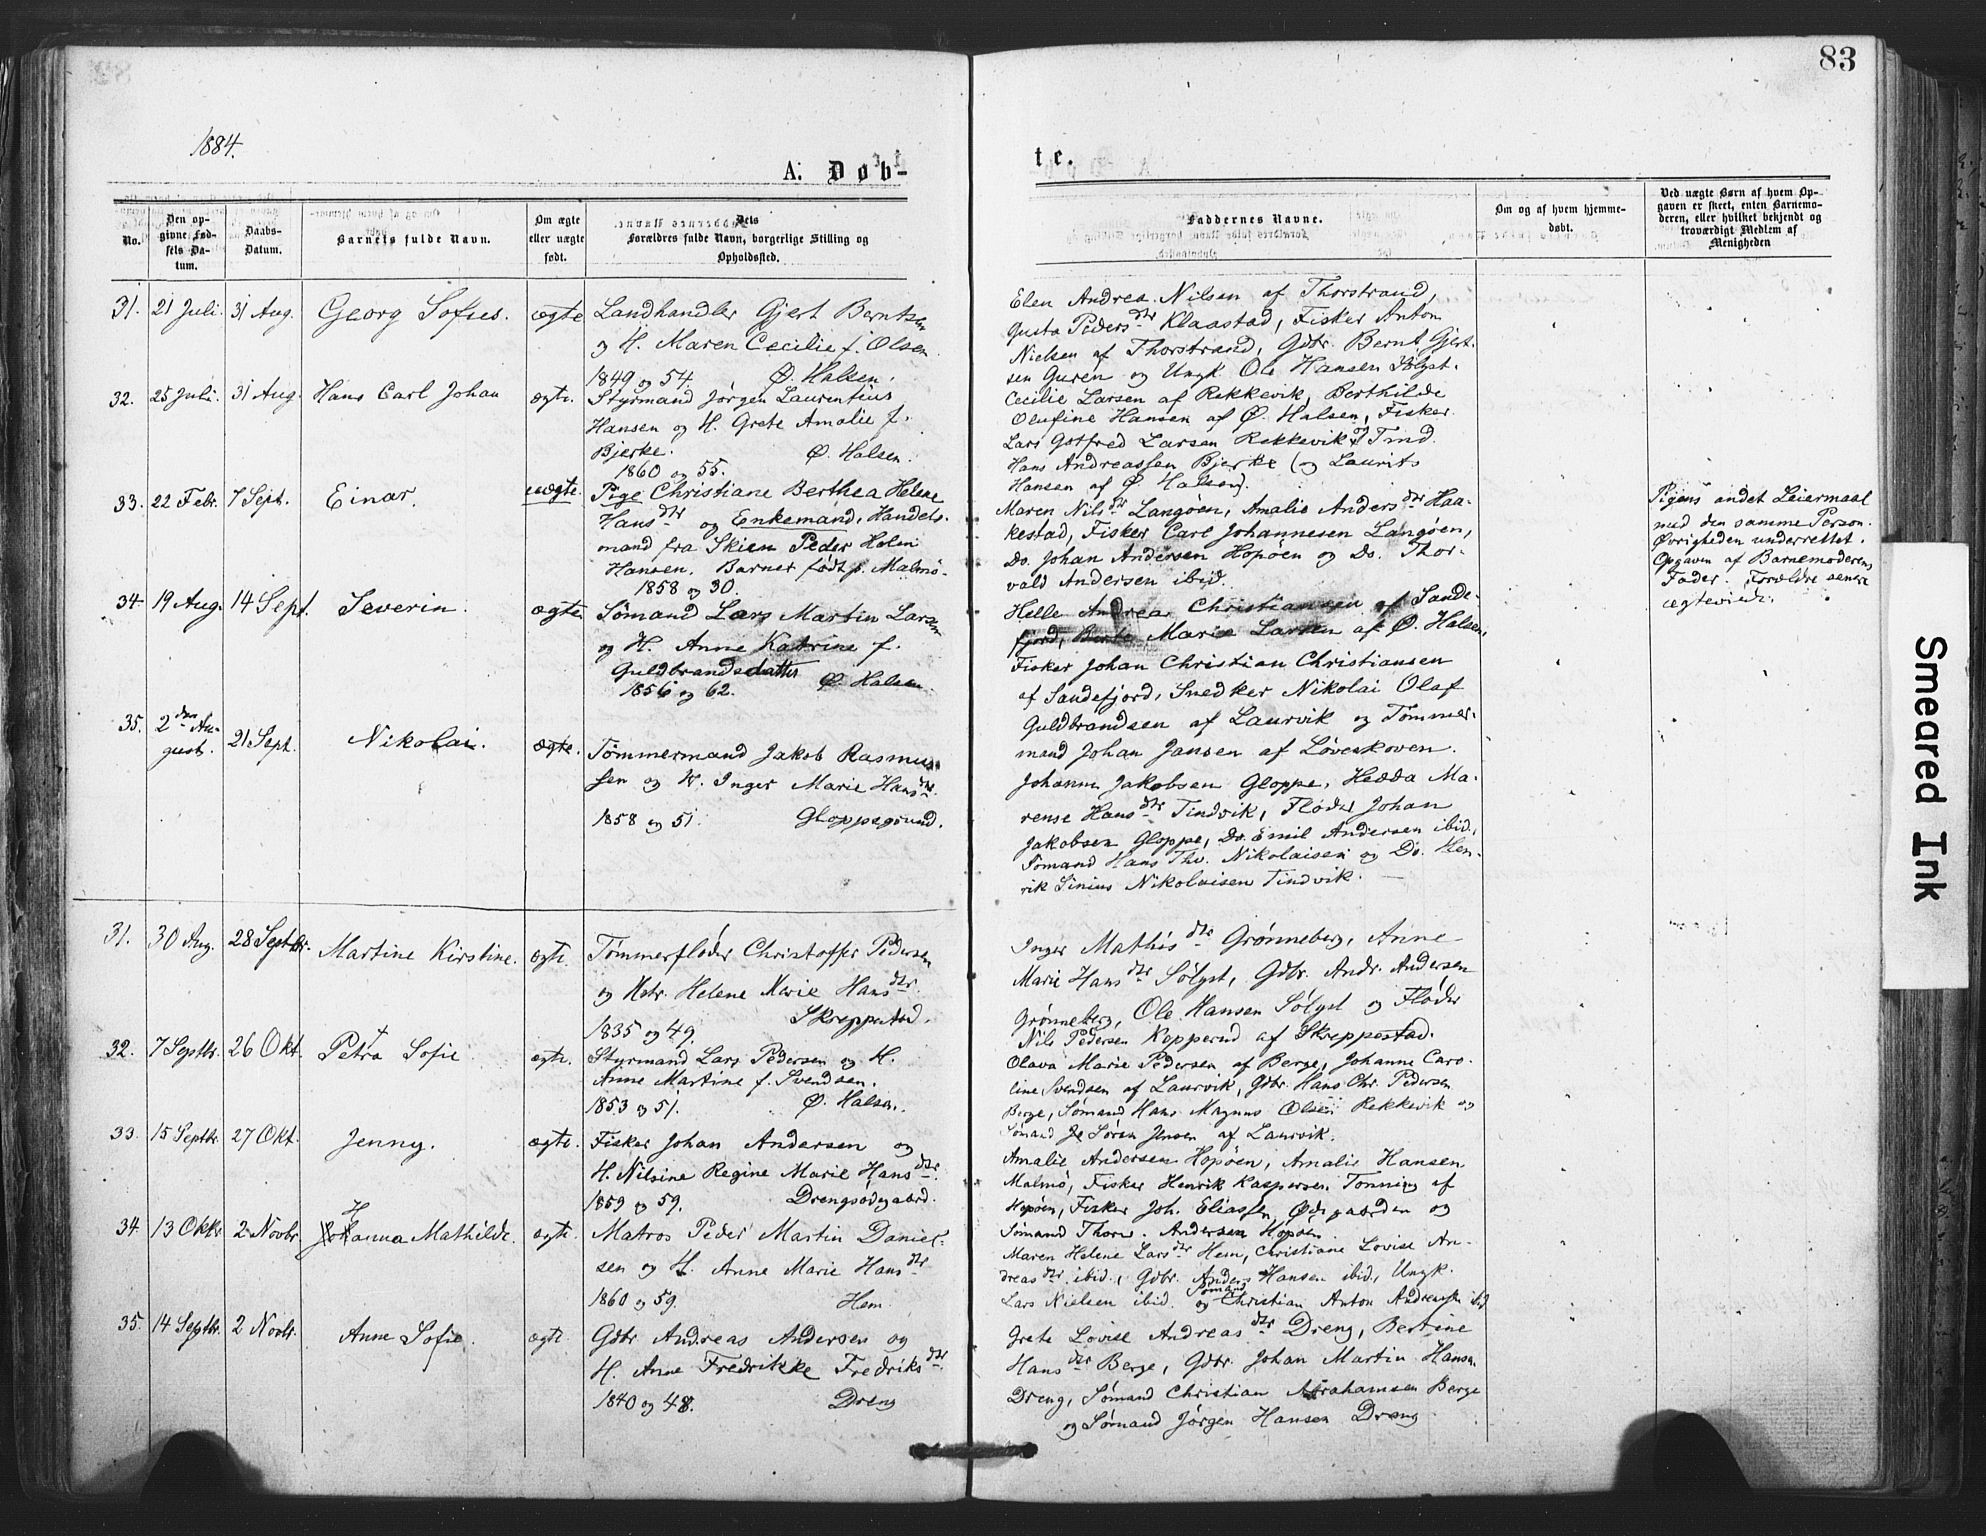 83
1884.
A. Døb-
te.
No.
Den op-
givne Fød-
sels Da-
tum.
Daabs-
Datum.
Barnets fulde Navn.
Om ægte
eller uægte
født.
Dets
Forældres fulde Navn, borgerlige Stilling og
Opholdssted.
Faddernes Navne.
Om og af hvem hjemme-
døbt.
Ved uægte Børn af hvem Op-
gaven er skeet, enten Barnemo-
deren, eller hvilket bekjendt og
troværdigt Medlem af
Menigheden
31. 21 Juli. 31 Aug. Georg Sofus. ægte
Landhandler Gjert Berntsen
og H. Maren Cecilie f. Olsen.
1849 og 54. Ø. Halsen.
Elen Andrea Nilsen af Thorstrand,
Gusta Pedersdtr Klaastad, Fisker Anton
Nielsen af Thorstrand, Gdbr. Bernt Gjert-
sen Guren og Ungk. Ole Hansen Sølyst.
32. 25 Juli. 31 Aug. Hans Carl Johan ægte.
Styrmand Jørgen Laurentius
Hansen og H. Grete Amalie f.
Bjerke. Ø. Halsen.
1860 og 55.
Cecilie Larsen af Rekkevik, Berthilde
Olufine Hansen af Ø. Halsen, Fisker
Lars Gotfred Larsen Rekkevik, Tmd.
Hans Andreassen Bjerke (og Laurits
Hansen af Ø. Halsen).
33. 22 Febr. 7 Sept. Einar. uægte.
Pige Christiane Berthea Helene
Hansdtr og Enkemand, Handels-
mand fra Skien Peder Holm
Hansen. Barnet født p. Malmø.
1858 og 30.
Maren Nilsdtr Langøen, Amalie Andersdtr Haa-
kestad, Fisker Carl Johannesen Langøen,
Do. Johan Andersen Hopøen og Do. Thor-
vald Andersen ibid.
Pigens andet Leiermaal
med den samme Person.
Øvrigheden underrettet.
Opgaven af Barnemoderens
Fader. Forældre senere
ægteviede.
34. 19 Aug. 14 Sept. Severin. ægte
Sømand Lars Martin Larsen
og H. Anne Katrine f.
Guldbrandsdatter Ø. Halsen
1856 og 62.
Helle Andrea Christiansen af Sande-
fjord, Marie Larsen af Ø. Halsen,
Fisker Johan Christian Christiansen
af Sandefjord, Snedker Nikolai Olaf
Guldbrandsen af Laurvik og Tømmer-
mand Johan Jansen af Løveskoven.
35. 2den Au-
gust. 21 Sept. Nikolai. ægte.
Tømmermand Jakob Rasmus-
sen og H. Inger Marie Hansdtr.
1858 og 51. Gloppegrund.
Johanne Jakobsen Gloppe, Hedda Ma-
rense Hansdtr Tindvik, Fløder Johan
Jakobsen Gloppe, Do. Emil Andersen ibid.,
Sømand Hans Thv. Nikolaisen og Do. Hen-
rik Sinius Nikolaisen Tindvik.
31. 30 Aug. 28 Septbr. Martine Kirstine. ægte.
Tømmerfløder Christoffer Pedersen
og Hstr. Helene Marie Hansdtr.
1835 og 49. Skreppestad.
Inger Mathisdtr Grønneberg, Anne
Marie Hansdtr Sølyst, Gdbr. Andr. Andersen
Grønneberg, Ole Hansen Sølyst og Fløder
Nils Pedersen Kopperud af Skreppestad.
32. 7 Septbr. 26 Okt. Petra Sofie. ægte.
Styrmand Lars Pedersen og H.
Anne Martine f. Svendsen.
1853 og 51. Ø. Halsen.
Olava Marie Pedersen af Berge, Johanne Caro-
line Svendsen af Laurvik, Gdbr. Hans Chr. Pedersen
Berge, Sømand Hans Magnus Olsen Rekkevik og
Sømand Søren Jensen af Laurvik.
33. 15 Septbr. 27 Okt. Jenny. ægte.
Fisker Johan Andersen og
H. Nilsine Regine Marie Hansdtr.
1859 og 59. Drengsødegaard.
Amalie Andersen Hopøen, Amalie Hansen
Malmø, Fisker Henrik Kaspersen Tønning af
Hopøen, Fisker Joh. Eliassen Ødegaarden og
Sømand Thorv. Andersen Hopøen.
34. 13 Okbr. 2 Novbr. Hanna Mathilde. ægte.
Matros Peder Martin Daniel-
sen og H. Anne Marie Hansdtr
1860 og 59. Hem.
Maren Helene Larsdtr Hem, Christiane Lovise An-
dreasdtr ibid., Gdbr. Anders Hansen ibid., Ungk.
Lars Nielsen ibid. og Sømand Christian Anton Andreassen ibid.
35. 14 Septbr. 2 Novbr. Anne Sofie. ægte.
Gdbr Andreas Andersen og
H. Anne Fredrikke Fredriksdtr.
1840 og 48. Dreng
Grete Lovise Andreasdtr Dreng, Bertine
Hansdtr Berge, Gdbr. Johan Martin Hansen
Dreng, Sømand Christian Abrahamsen Berge
og Sømand Jørgen Hansen Dreng
Smeared Ink